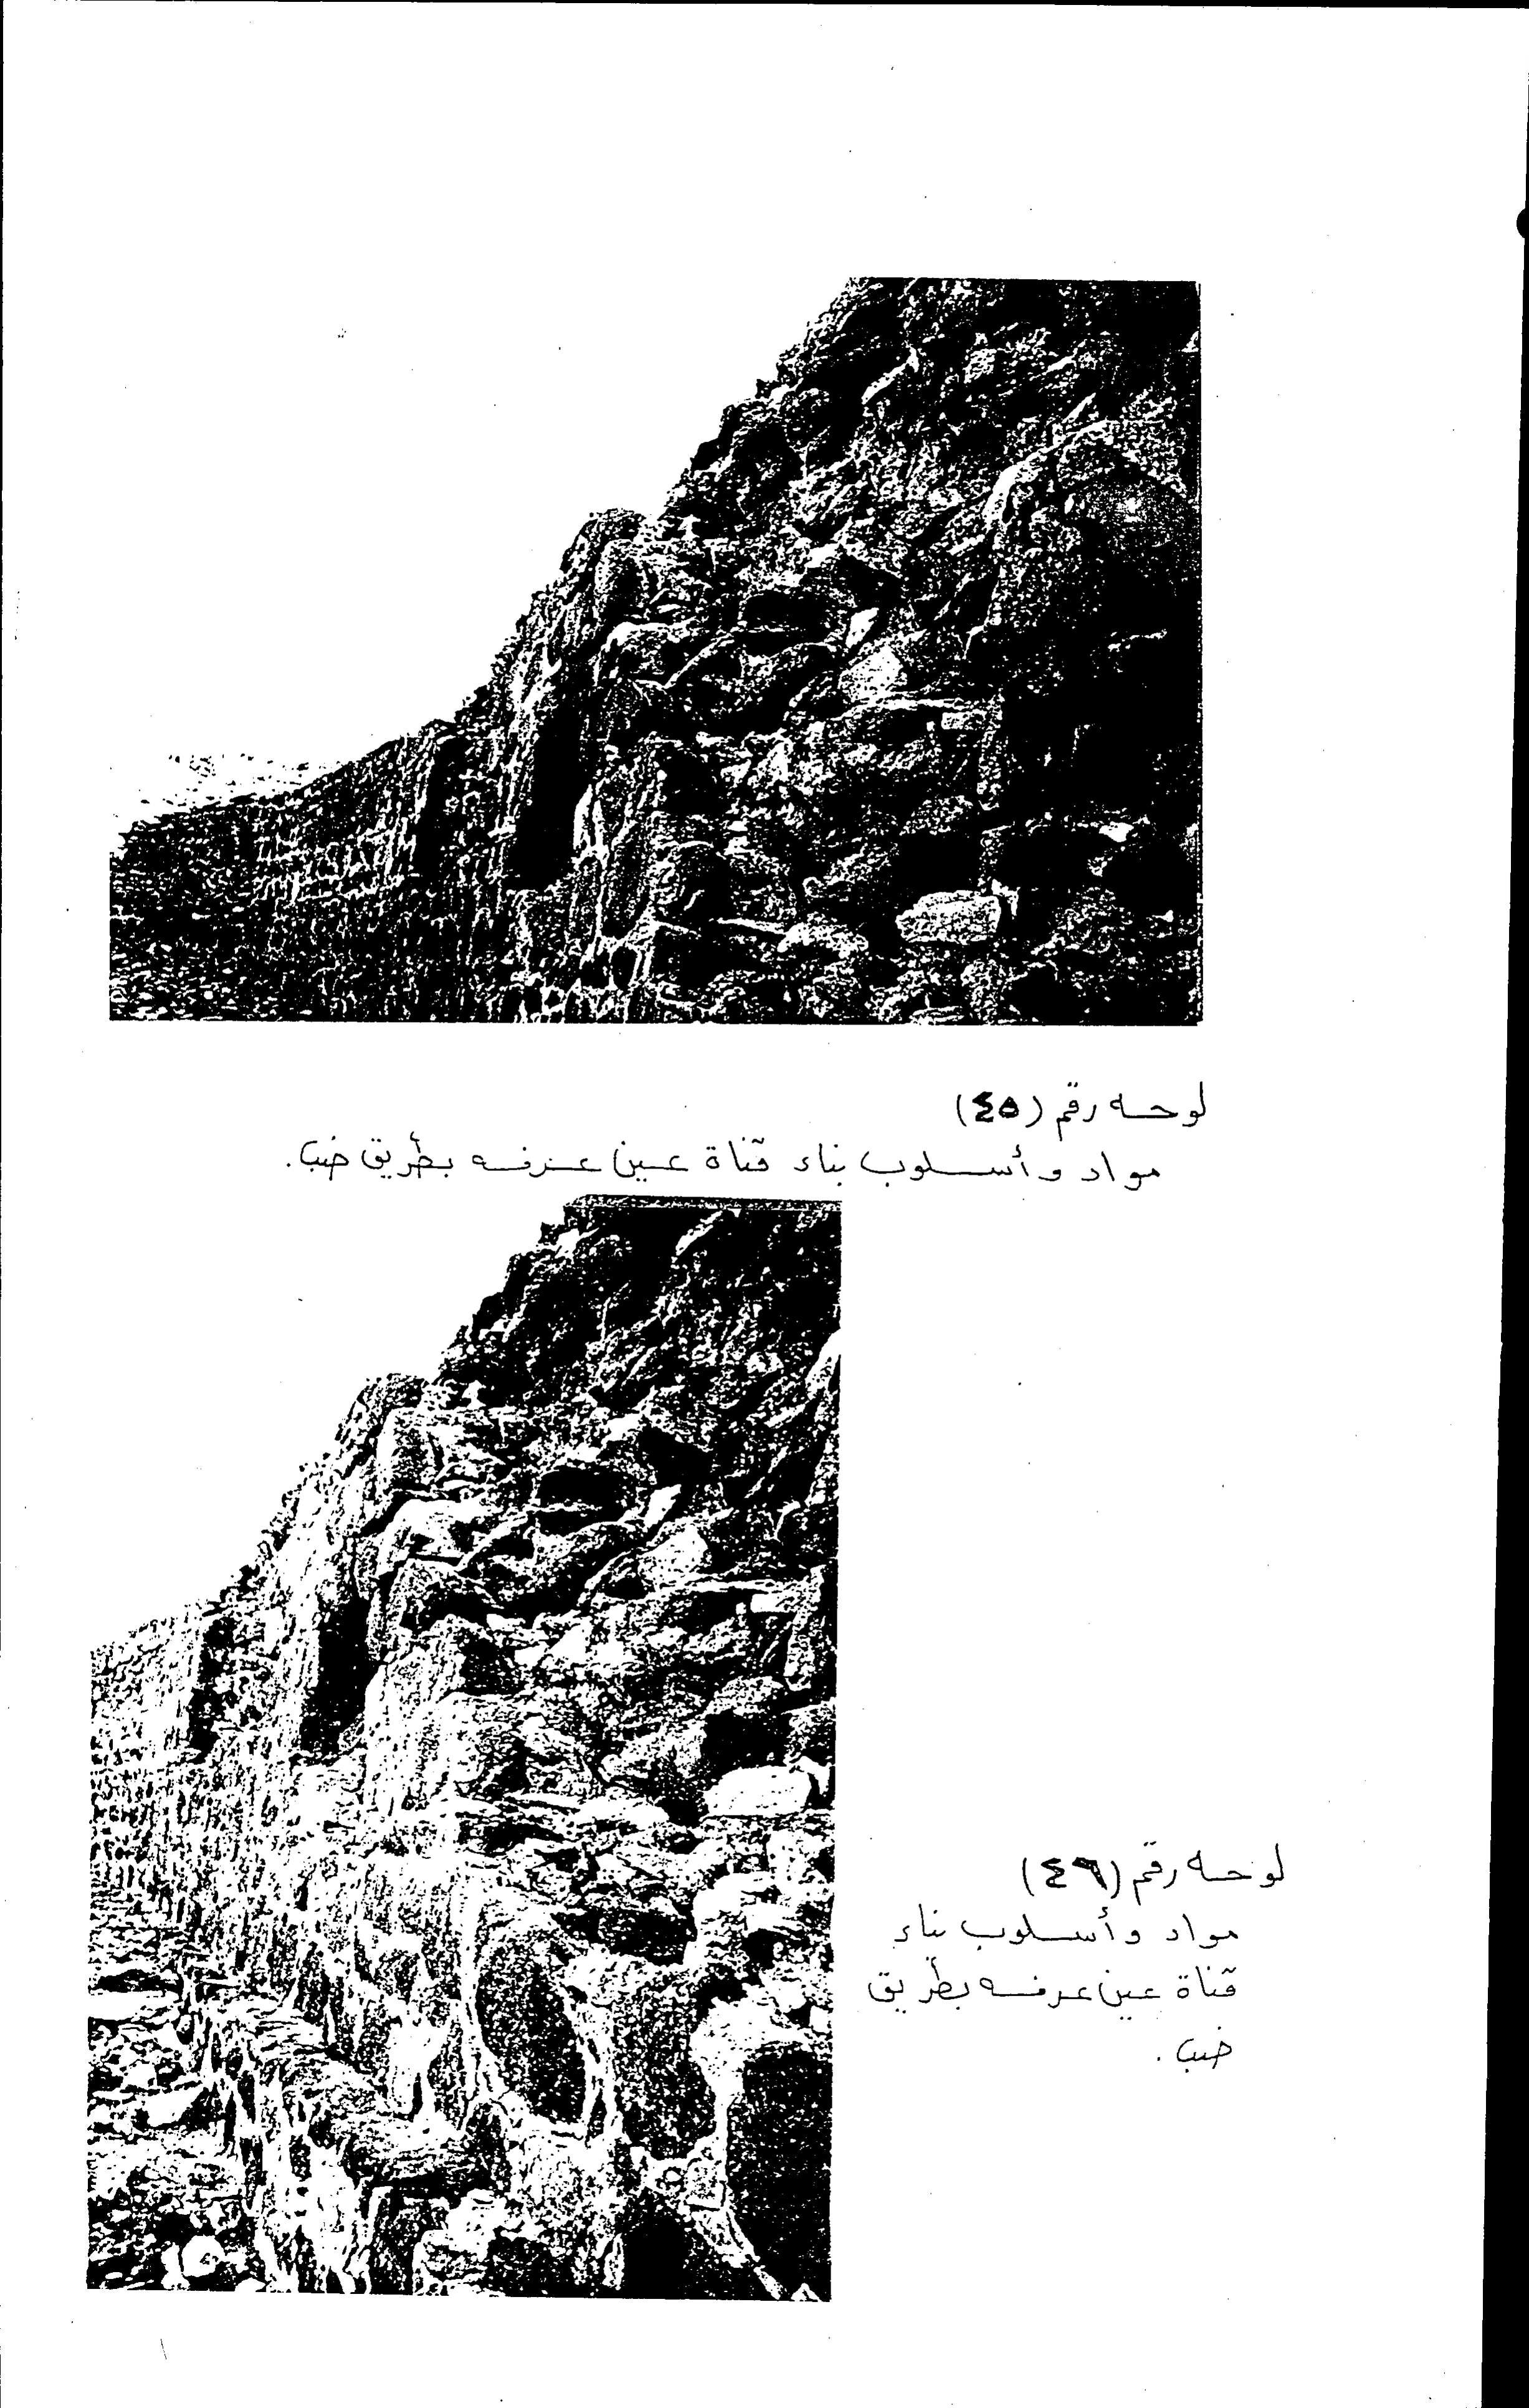 لوحه رقم (٤٥)
مواد وأسلوب بناء قناة عين عرفه بطريق ضب.
لوحه رقم (٤٦)
مواد وأسلوب بناء
قناة عين عرفه بطريق
ضب.